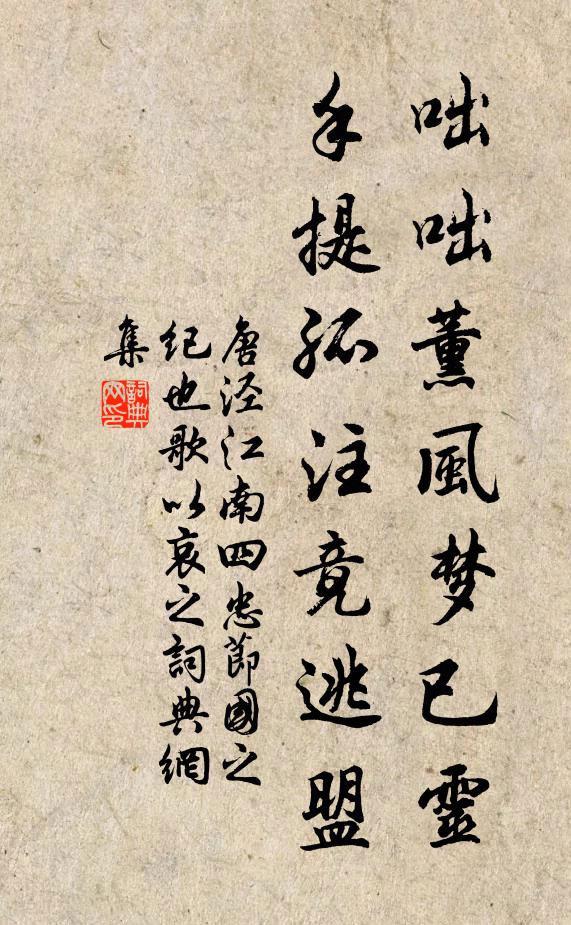 咄咄薰風梦已靈
手提孤注竟逃盟
唐泾江南四忠節國之
纪也歌以哀之詞典網
集
詞典网印